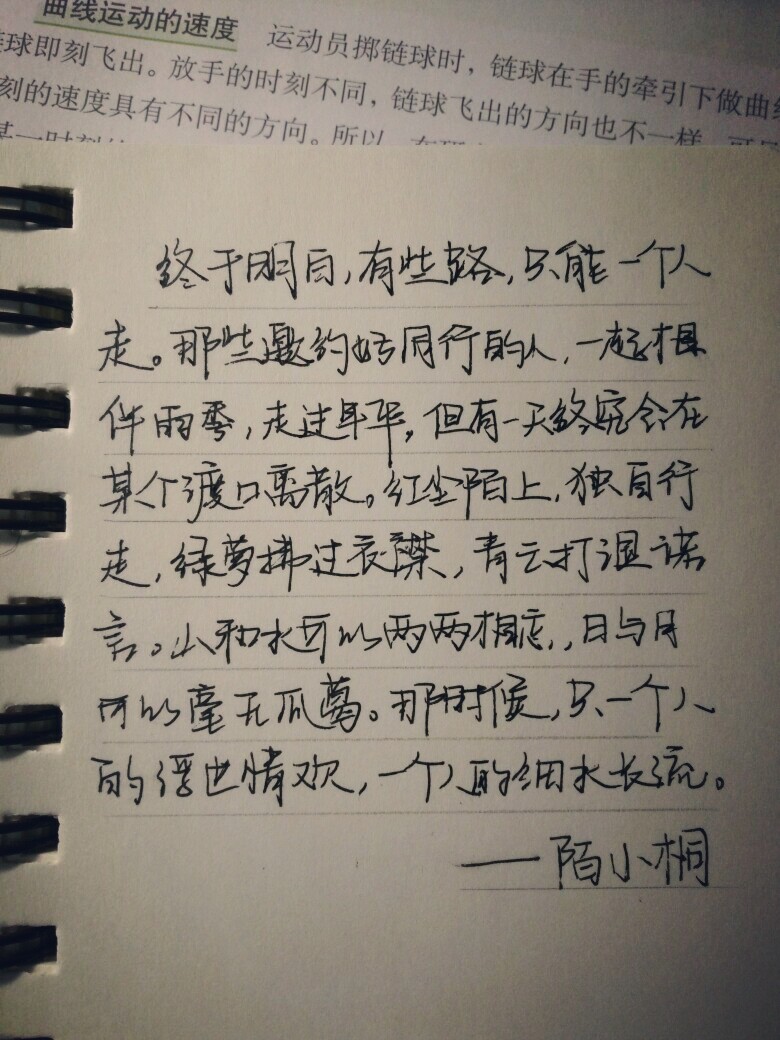 曲线运动的速度 运动员掷链球时，链球在手的牵引下做曲线
链球即刻飞出。放手的时刻不同，链球飞出的方向也不一样，可见
刻的速度具有不同的方向。所以，在
某一时刻
终于明白，有些路，只能一个人
走。那些邀约好同行的人，一起相
伴雨季，走过年华，但有一天终究会在
某个渡口离散。红尘陌上，独自行
走，绿萝拂过衣襟，青云打湿诺
言。山和水可以两两相忘，日与月
可以毫无瓜葛。那时候，只一个人
的浮世情欢，一个人的细水长流。
——陌小桐